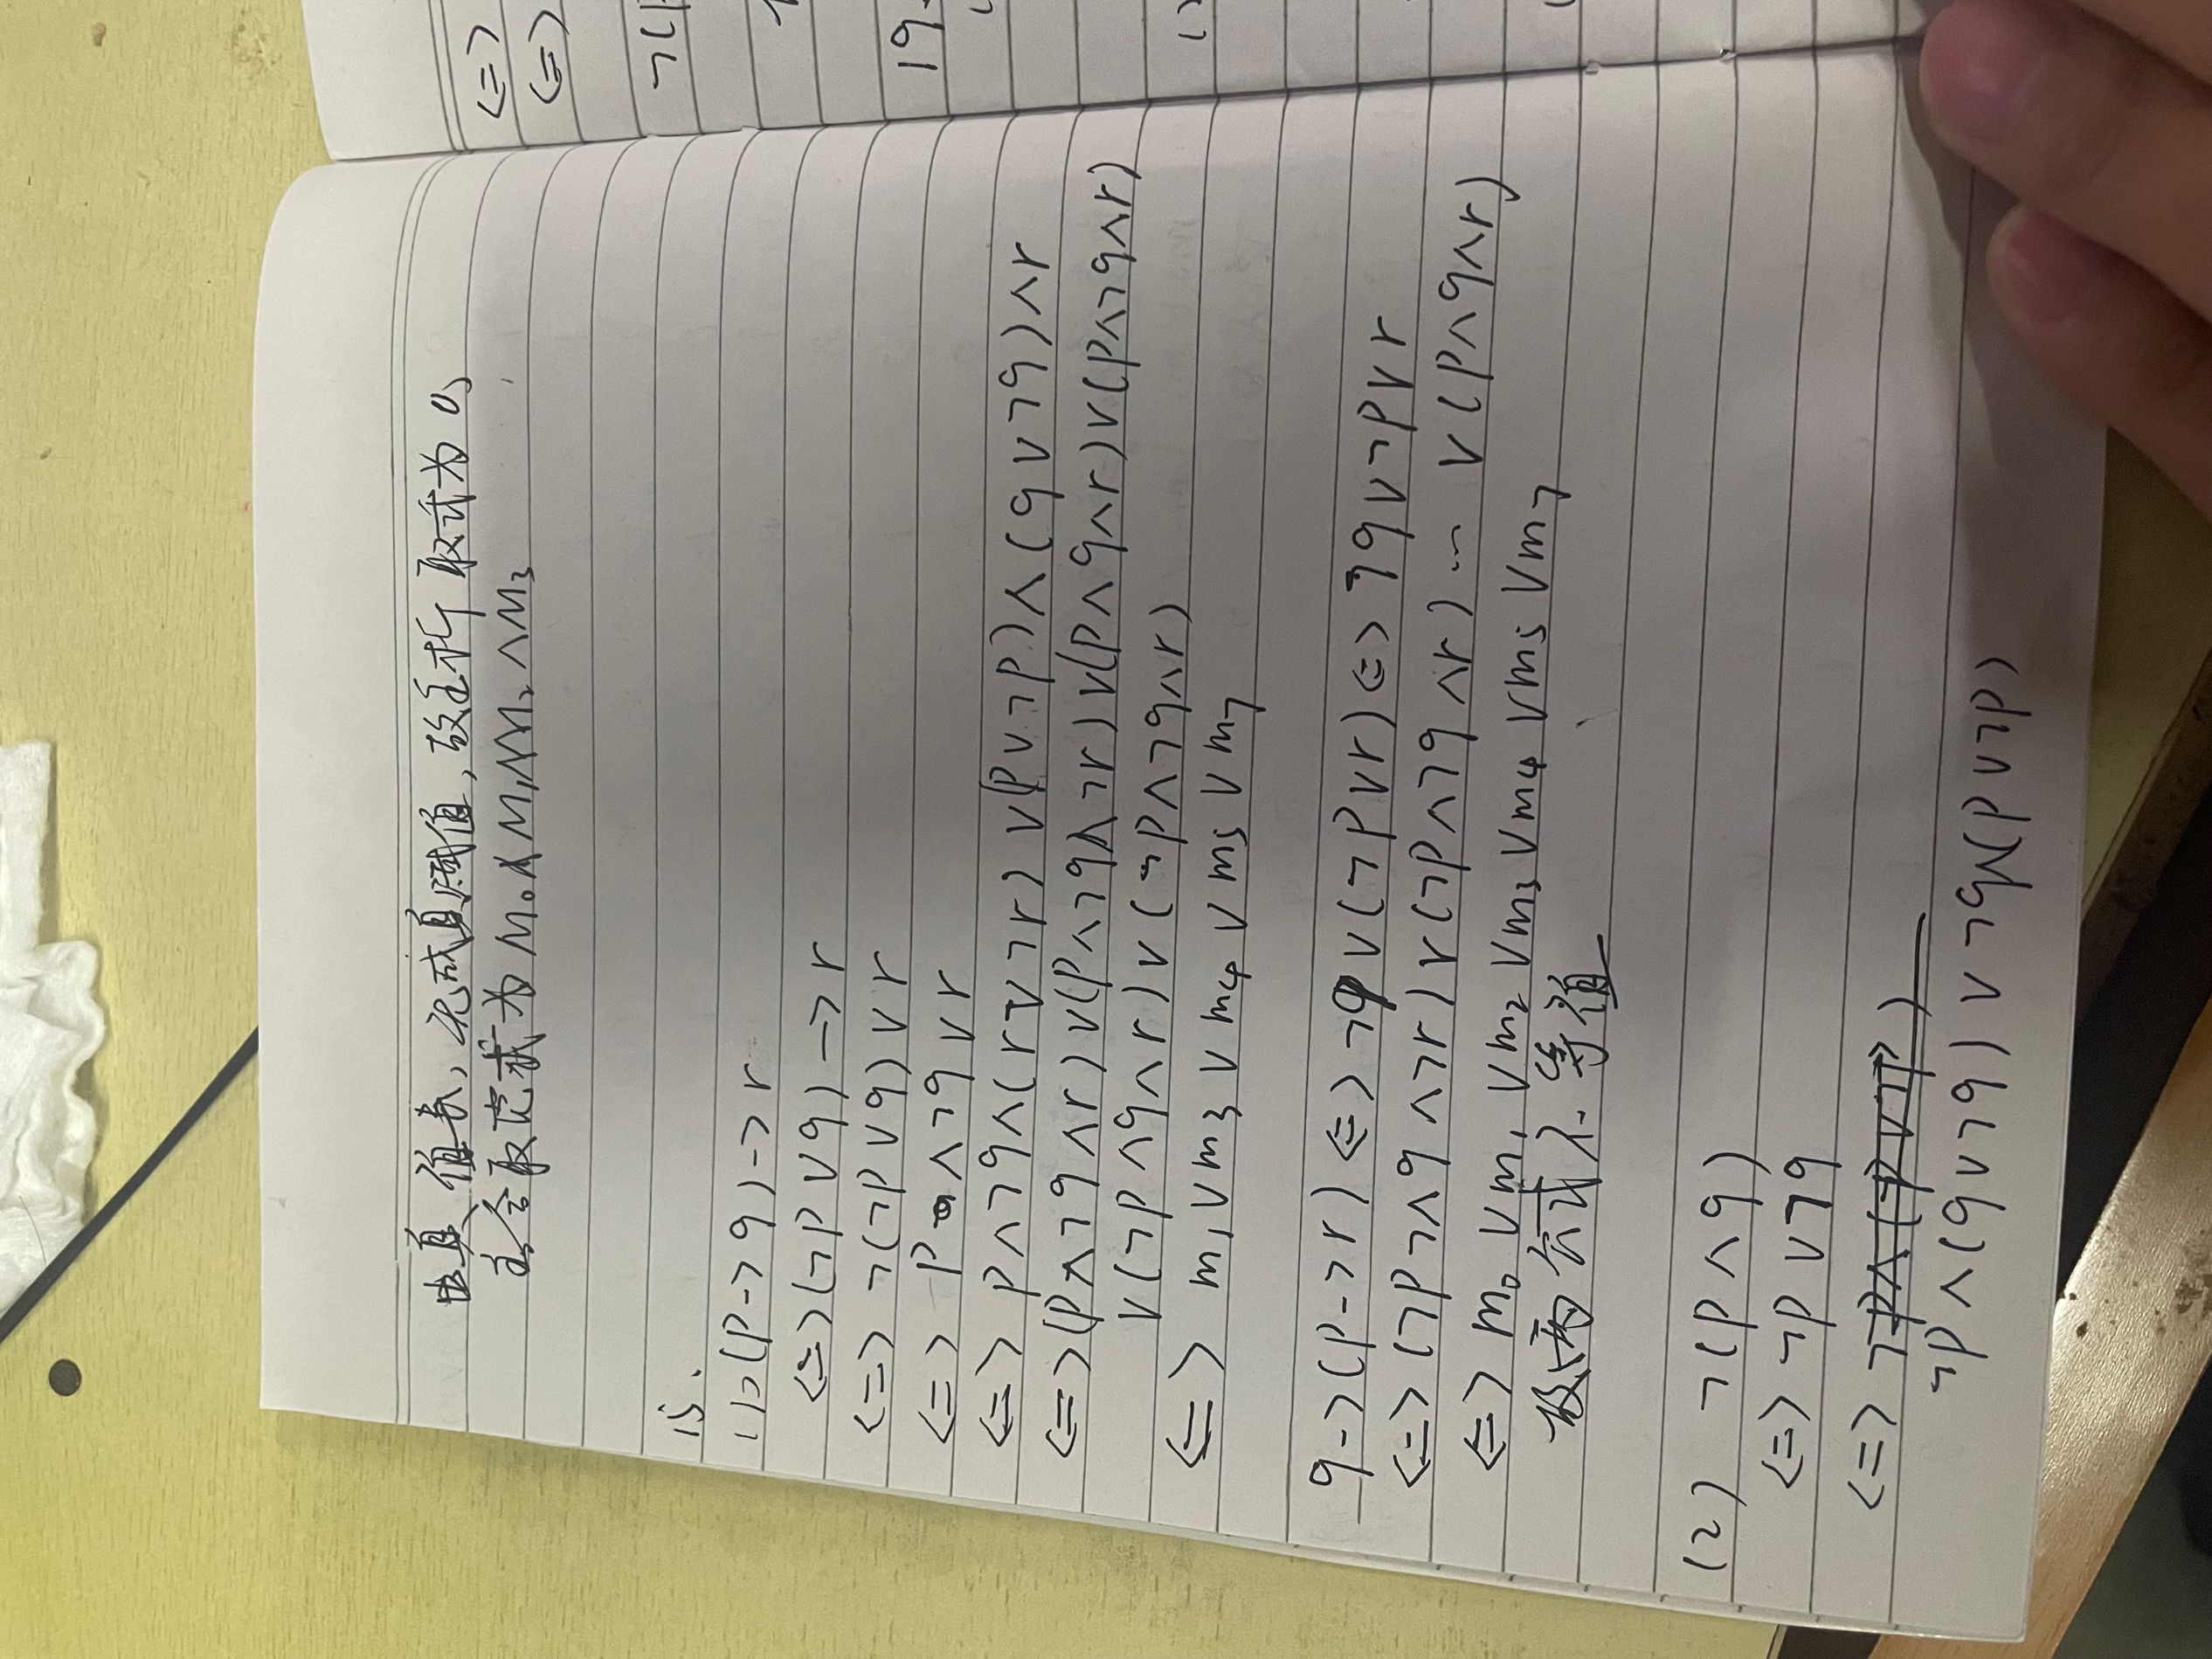 由真值表,无成真赋值,故主析取式为0,
主合取范式为M₀∧M₁∧M₂∧M₃
15.
(1)(p->q)->r
<=>(¬p∨q)->r
<=>¬(¬p∨q)∨r
<=>p∧¬q∨r
<=>p∧¬q∧(r∨¬r)∨(p∨¬p)∧(q∨¬q)∧r
<=>(p∧¬q∧r)∨(p∧¬q∧¬r)∨(p∧q∧r)∨(p∧¬q∧r)
∨(¬p∧q∧r)∨(¬p∧¬q∧r)
<=>m₁∨m₃∨m₄∨m₅∨m₇
q->(p->r)<=>¬q∨(¬p∨r)<=>¬q∨¬p∨r
<=>(¬p¬∧q∧¬r)∨(¬p∧¬q∧r)…∨(p∧q∧r)
<=>m₀∨m₁∨m₂∨m₃∨m₄∨m₅∨m₇
故两公式不等值
(2) ¬(p∧q)
<=>¬p∨¬q
<=>
¬p∧(q∨¬q)∨¬q∧(p∨¬p)
<=>
<=>
¬(p
19.